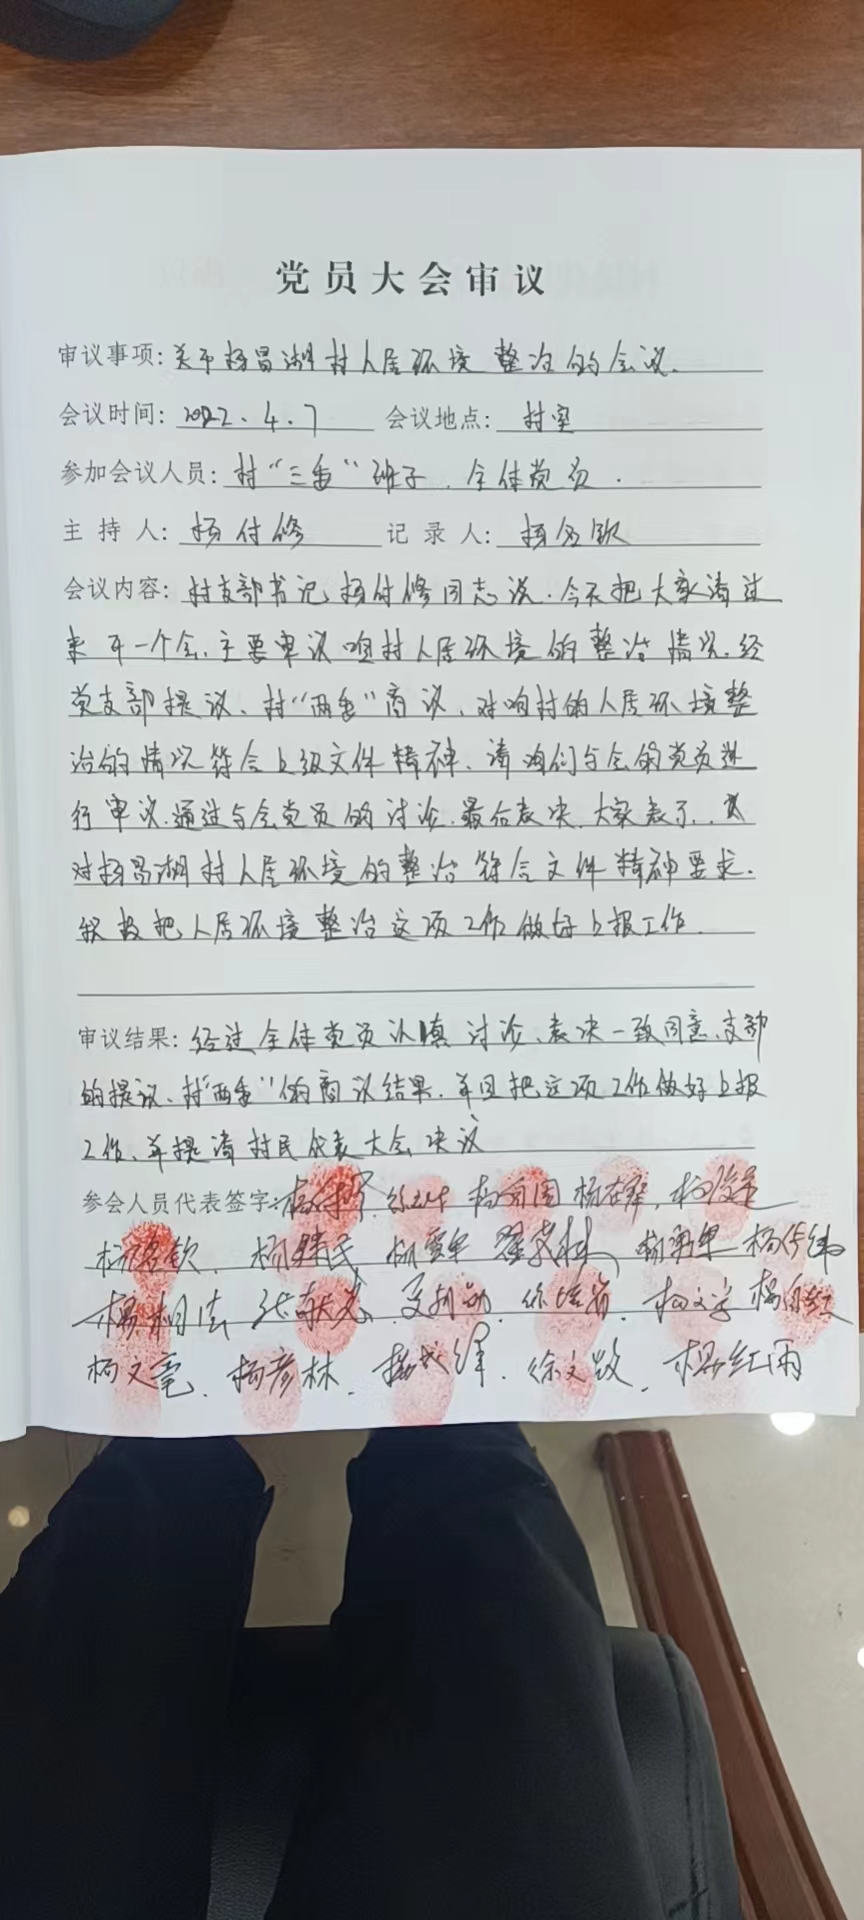 党员大会审议
审议事项: 关于杨昌湖村人居环境整治的会议.
会议时间: 2022.4.7 会议地点: 村室
参加会议人员: 村“三委”班子.全体党员.
主持人: 杨付修 记录人: 杨钦
会议内容: 村支部书记杨付修同志说.今天把大家请过
来开一个会.主要审议咱村人居环境的整治情况.经
党支部提议、村“两委”商议、对咱村的人居环境整
治的情况符合上级文件精神、请咱们与会的党员进
行审议.通过与会党员的讨论.最后表决.大家表示..
对杨昌湖村人居环境的整治符合文件精神要求.
积极把人居环境整治这项工作做好上报工作.
审议结果: 经过全体党员认慎讨论、表决一致同意、支部
的提议、村“两委”的商议结果.并且把这项工作做好上报
工作、并提请村民代表大会决议
参会人员代表签字: 杨付修
杨建民
杨相法 张献忠 杨文字
杨文亮.杨彦林. 徐文政.杨红雨